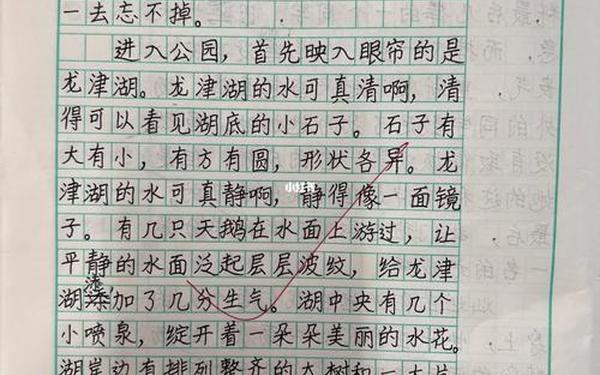 一去忘不掉。
进入公园，首先映入眼帘的是
龙津湖。龙津湖的水可真清啊，清
得可以看见湖底的小石子。石子有
大有小，有方有圆，形状各异。龙
津湖的水可真静啊，静得像一面镜
子。有几只天鹅在水面上游过，让
平静的水面泛起层层波纹，给龙津
湖添加了几分生气。湖中央有几个
小喷泉，绽开着一朵朵美丽的水花。
湖岸边有排列整齐的大树和一大片
小红书